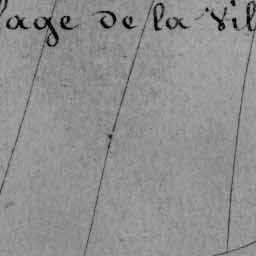 age de la Vil